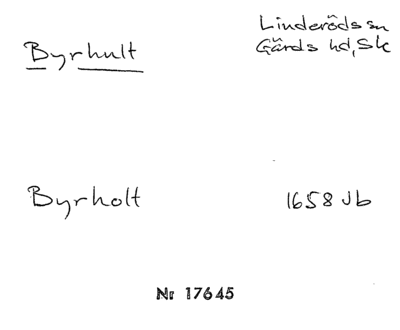 Linderöds sn
Byrhult
Gärds hd, Sk
Byrholt
1658 Jb
Nr 17645